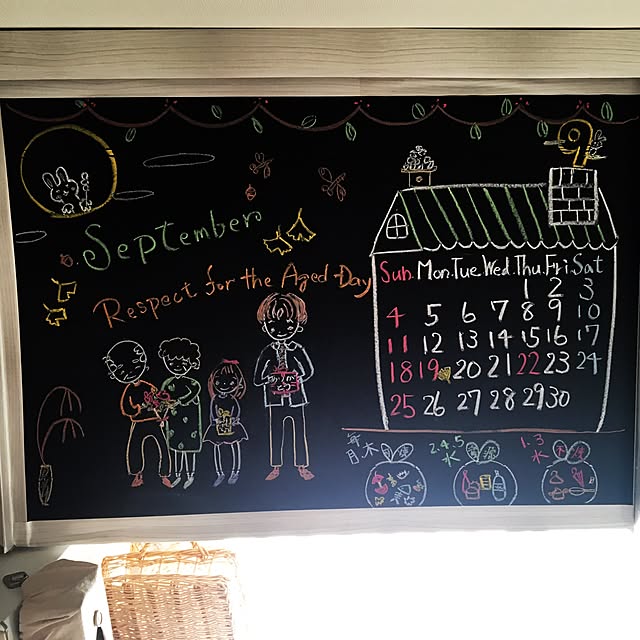 September
Respect for the Aged Day
9
Sun. Mon. Tue. Wed. Thu. Fri. Sat
1 2 3
4 5 6 7 8 9 10
11 12 13 14 15 16 17
18 19 20 21 22 23 24
25 26 27 28 29 30
毎月・木
2.4.5 水
1.3 水